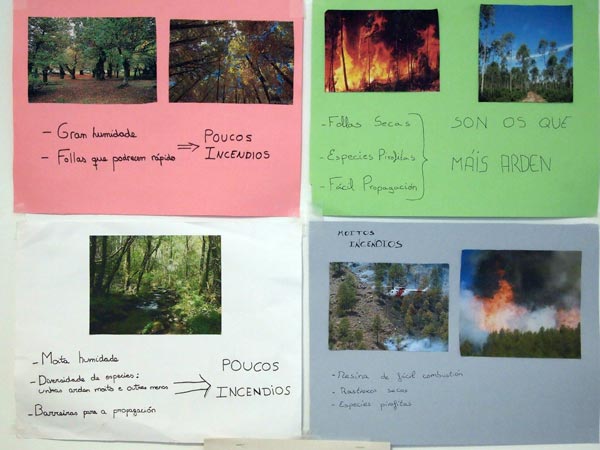 - Gran humidade
- Follas que podrecen rápido
⇒ POUCOS
INCENDIOS
- Follas Secas
- Especies Pirofitas
- Fácil Propagación
SON OS QUE
MÁIS ARDEN
- Moita humidade
- Diversidade de especies:
unhas arden moito e outras menos
- Barreiras para a propagación
POUCOS
INCENDIOS
MOITOS
INCENDIOS
- Resina de fácil combustón
- Rastroxos secos
- Especies pirofitas